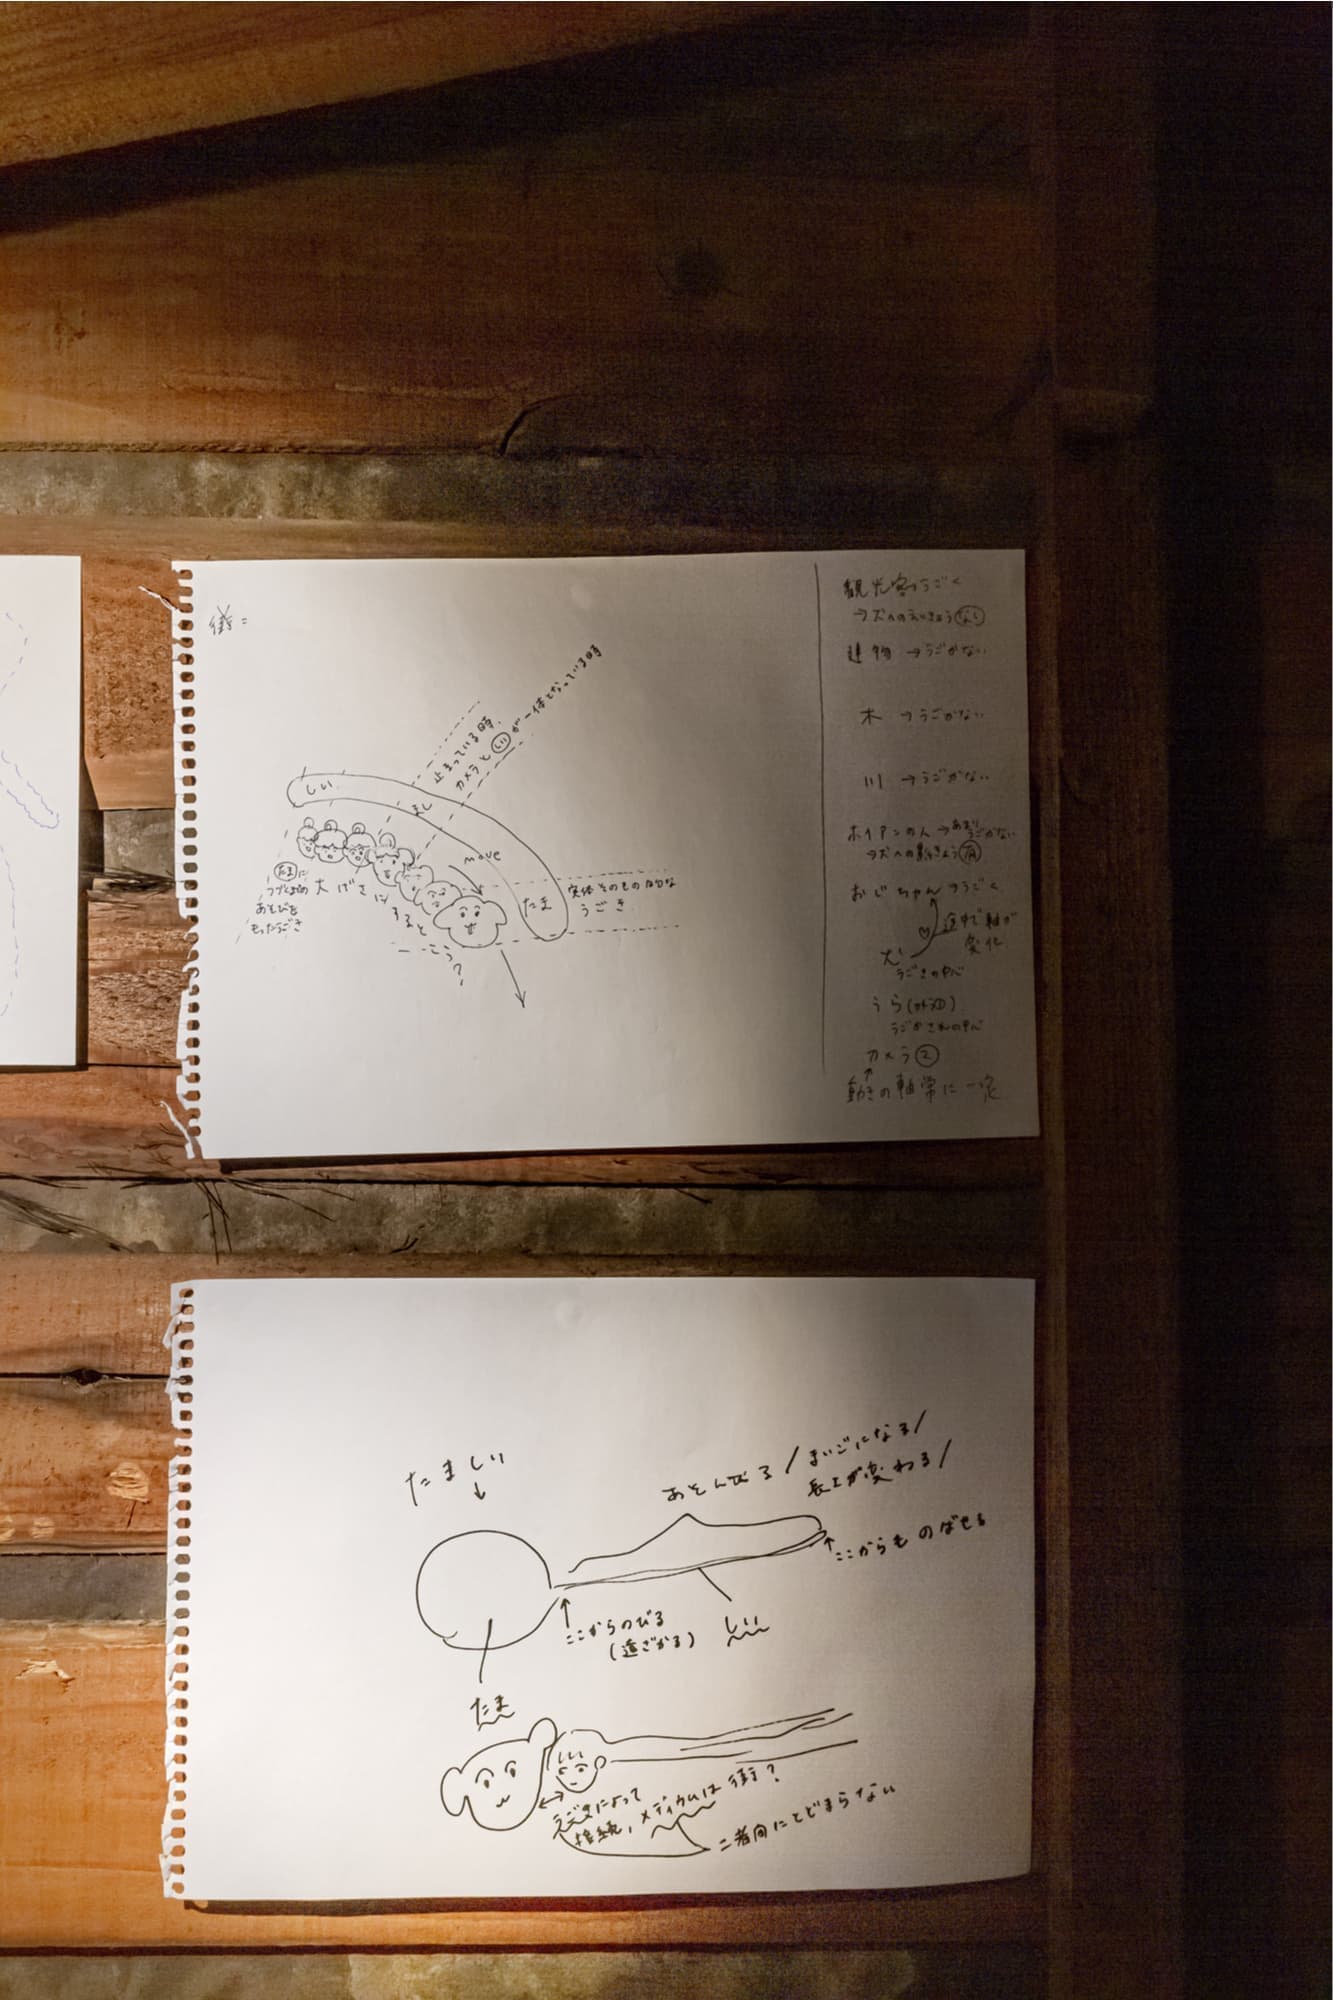 しい
まし
たま
止まっている時、
カメラとしいが一体となっている時
move
実体そのもの的な
うごき
たまに
あそびを
もったうごき
大げさにすると
こう?
観光客うごく
→犬へのえいきょうなし
建物→うごかない
木→うごかない
川→うごかない
ホイアンの人→あまりうごかない
→犬への影きょう有
おじちゃん→うごく
途中で軸が
変化
犬
うごきの中心
うら
うごかされの中心
カメラ②
動きの軸常に一定
たましい
↓
あそんびる/まいごになる/
長さが変わる/
ここからものばせる
ここからのびる
(遠ざかる)
しい
たま
接続、メディウムは街?
二者間にとどまらない